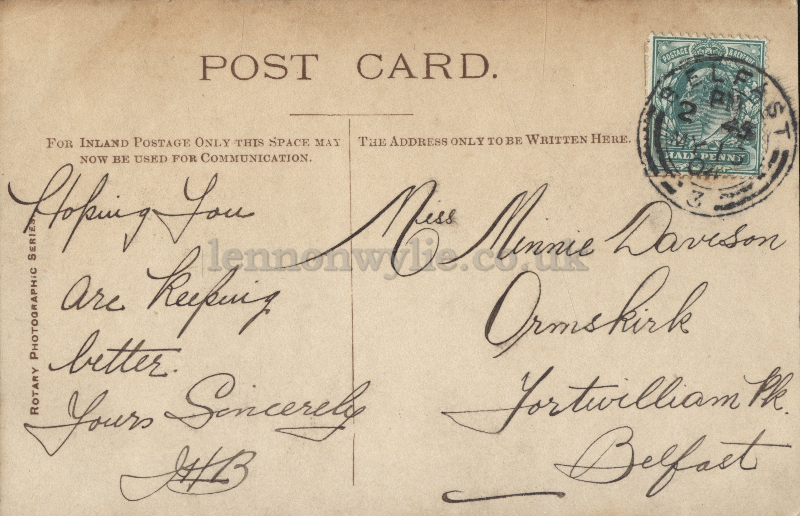 POST CARD.
FOR INLAND POSTAGE ONLY THIS SPACE MAY
NOW BE USED FOR COMMUNICATION.
THE ADDRESS ONLY TO BE WRITTEN HERE.
POSTAGE
HALF PENNY
BELFAST
PM
2 45
04
3
ROTARY PHOTOGRAPHIC SERIES
Hoping You
are keeping
better.
Yours Sincerely
JHB
Miss Minnie Davison
Ormskirk
Fortwilliam Pk.
Belfast
lennonwylie.co.uk